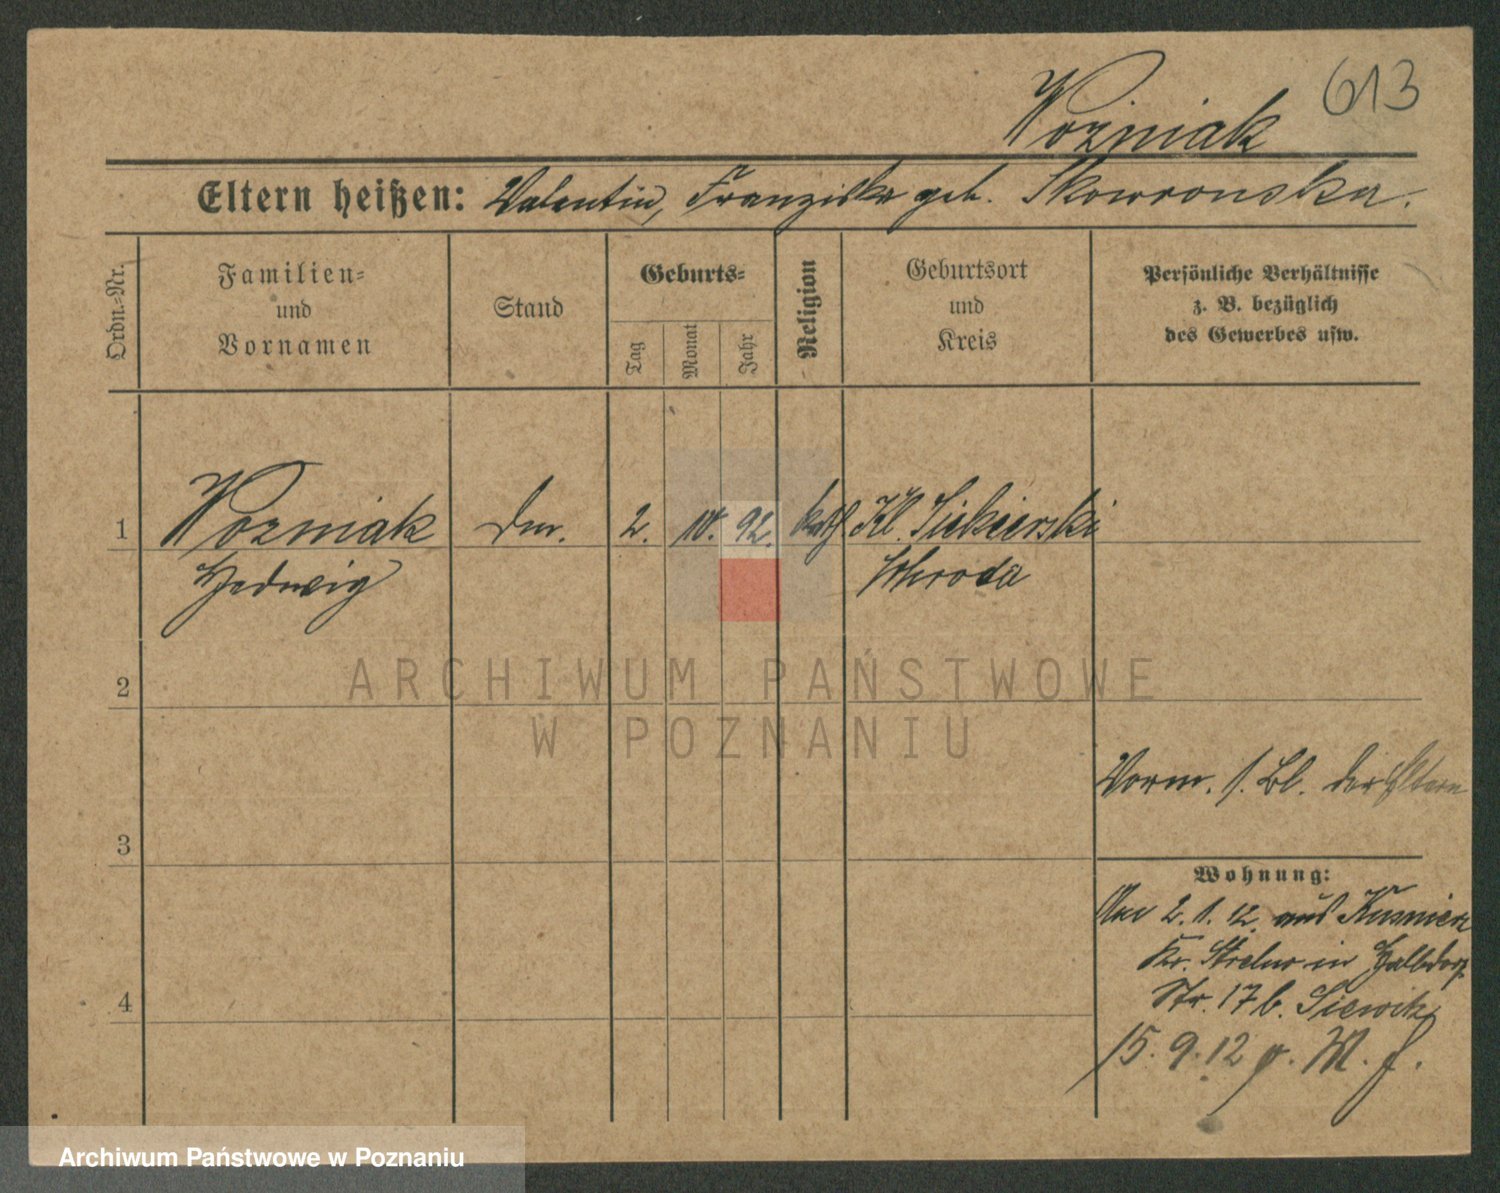 613
Woźniak
Eltern heißen: Valentin, Franziska geb. Skowronska.
Ordn.-Nr.
Familien-
und
Vornamen
Stand
Geburts-
Tag
Monat
Jahr
Religion
Geburtsort
und
Kreis
Persönliche Verhältnisse
z. B. bezüglich
des Gewerbes usw.
1
Wozniak 2. 10. 92. kath. Kl. Siekierki
Hedwig Schroda
2
ARCHIWUM PAŃSTWOWE
W POZNANIU
Vorm. s. Bl. der Eltern
3
Wohnung:
2. 1. 12. aus Kusnierz
Kr. Strelno in Halbdorf
Str. 17 b.
4
15. 9. 12
Archiwum Państwowe w Poznaniu